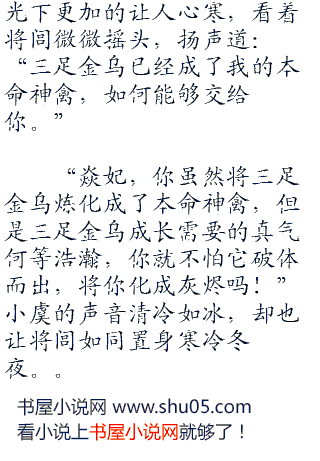 光下更加的让人心寒，看着
将闾微微摇头，扬声道：
“三足金乌已经成了我的本
命神禽，如何能够交给
你。”
“焱妃，你虽然将三足
金乌炼化成了本命神禽，但
是三足金乌成长需要的真气
何等浩瀚，你就不怕它破体
而出，将你化成灰烬吗！”
小虞的声音清冷如冰，却也
让将闾如同置身寒冷冬
夜。。
书屋小说网 www.shu05.com
看小说上书屋小说网就够了！